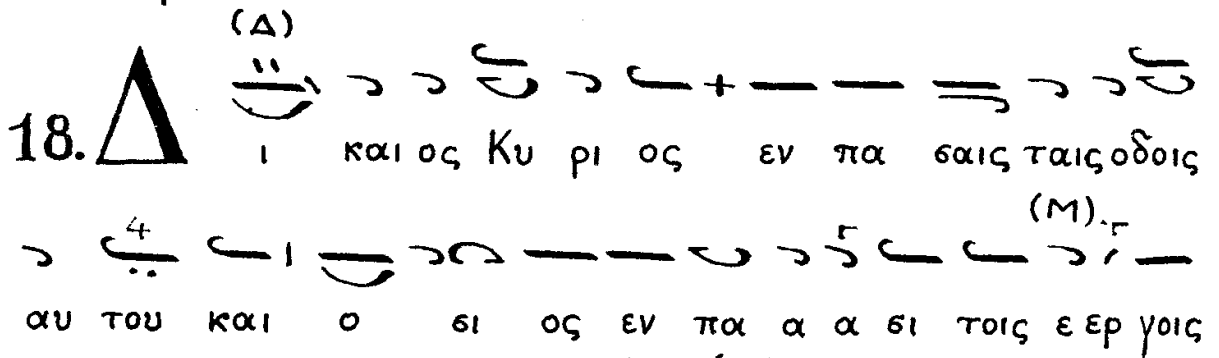 (Δ)
18. Δι και ος Κυ ρι ος εν πα σαις ταις οδοις
4 (Μ)
αυ του και ο σι ος εν πα α α σι τοις ε ερ γοις